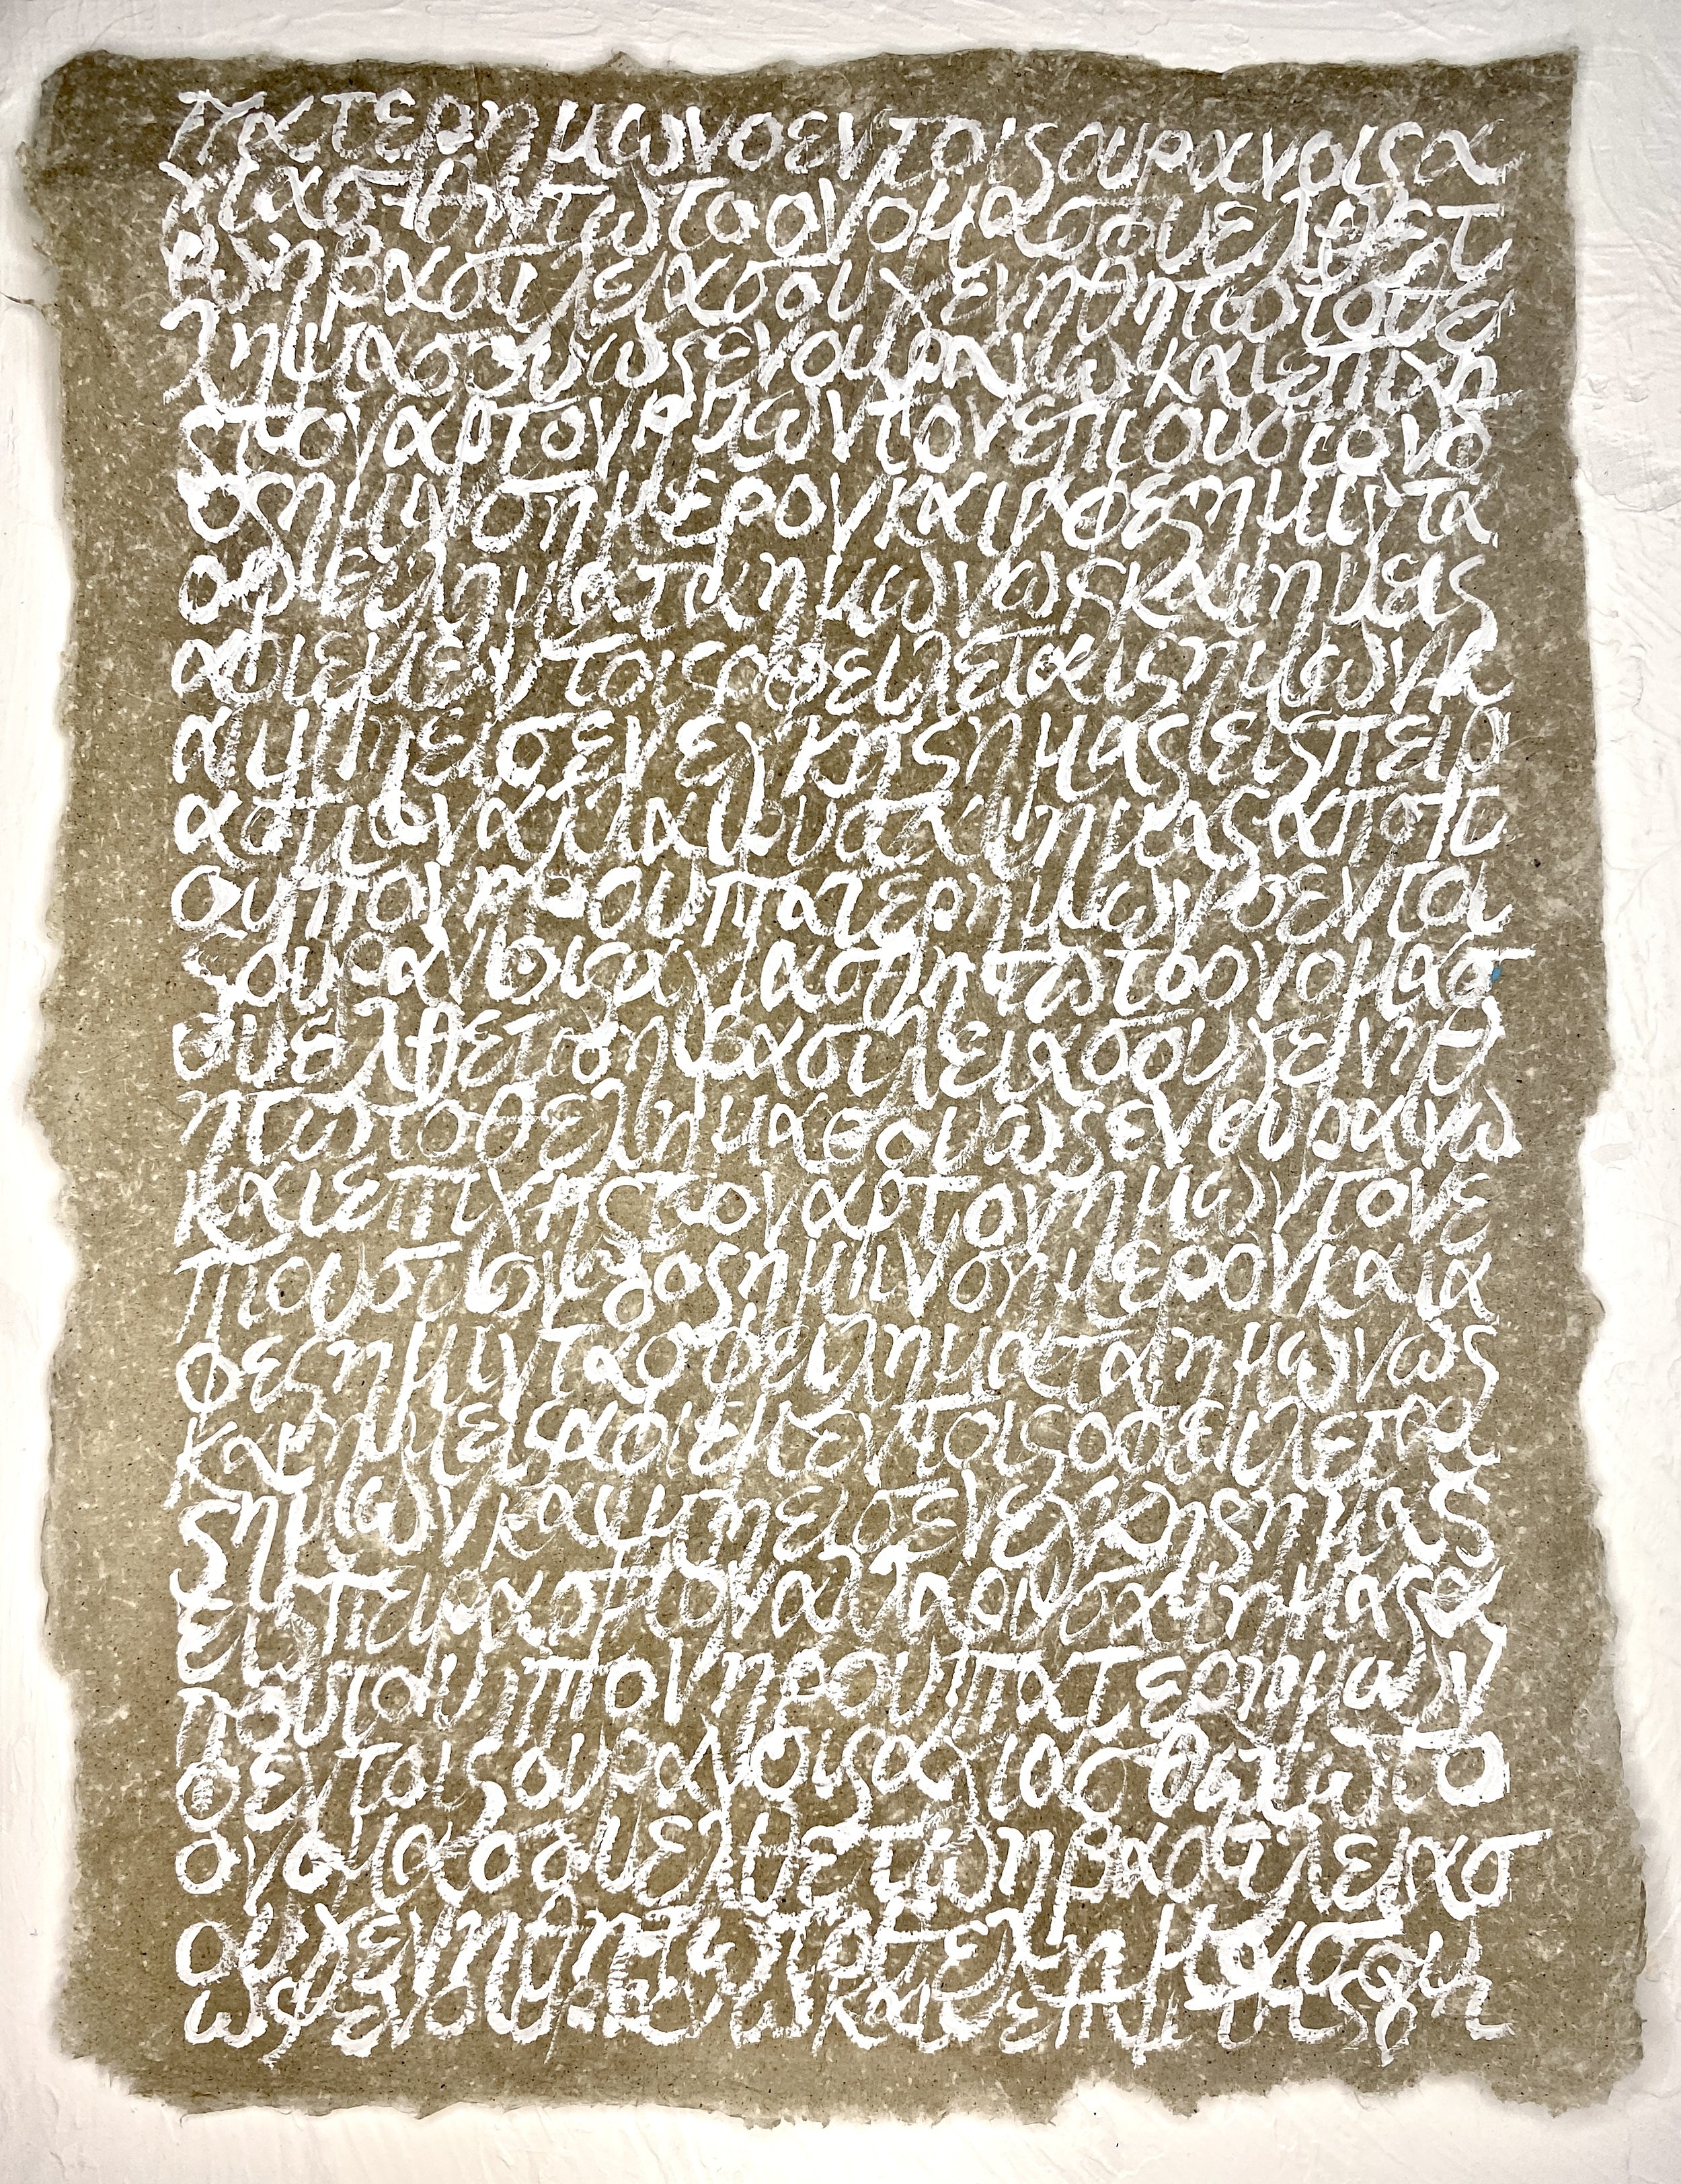 πατερημωνοεντοιςουρανοιςα
γιασθητωτοονομασουελθετ
ωηβασιλειασουγενηθητωτοθε
λημασουωςενουρανωκαιεπιγη
ςτοναρτονημωντονεπιουσιονδ
οςημινσημερονκαιαφεςημιντα
οφιεληματαημωνωςκαιημεις
αφιεμεντοιςοφειλεταιςημωνκ
αιμηεισενεγκηςημαςειςπειρ
ασμοναλλαρυσαιημαςαποτ
ουπονηρουπατερημωνοεντοι
ςουρανοιςαγιασθητωτοονομασ
ουελθετωηβασιλειασουγενηθ
ητωτοθελημασουωςενουρανω
καιεπιγηςτοναρτονημωντονε
πιουσιονδοςημινσημερονκαια
φεςημινταοφειληματαημωνως
καιημειςαφιεμεντοιςοφειλεται
ςημωνκαιμηεισενεγκηςημας
ειςπειρασμοναλλαρυσαιημαςα
ποτουπονηρουπατερημων
οεντοιςουρανοιςαγιασθητωτο
ονομασουελθετωηβασιλειασ
ουγενηθητωτοθελημασου
ωςενουρανωκαιεπιγηςγη